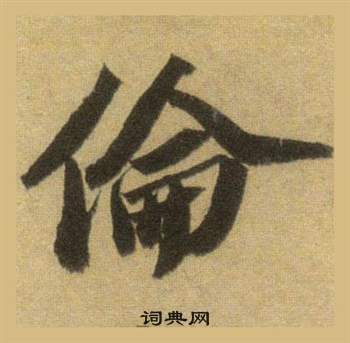 倫
词典网